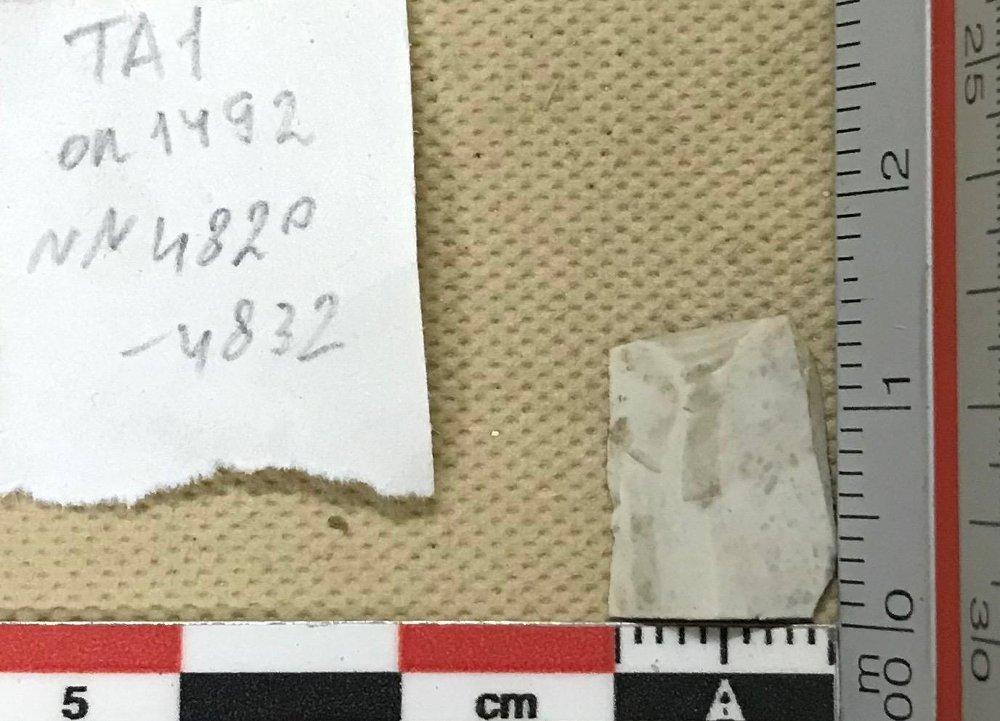 TA1
оп 1492
NN 482
-4832
2
1
0
m
00
2/5
3/0
5
cm